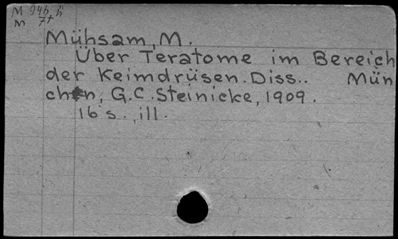 M 946. ü
m 7t
Mühsam, M.
Über Teratome im Bereich
der Keimdrüsen. Diss.. Mün
chen, G.C. Steinicke, 1909.
16 s., ill.